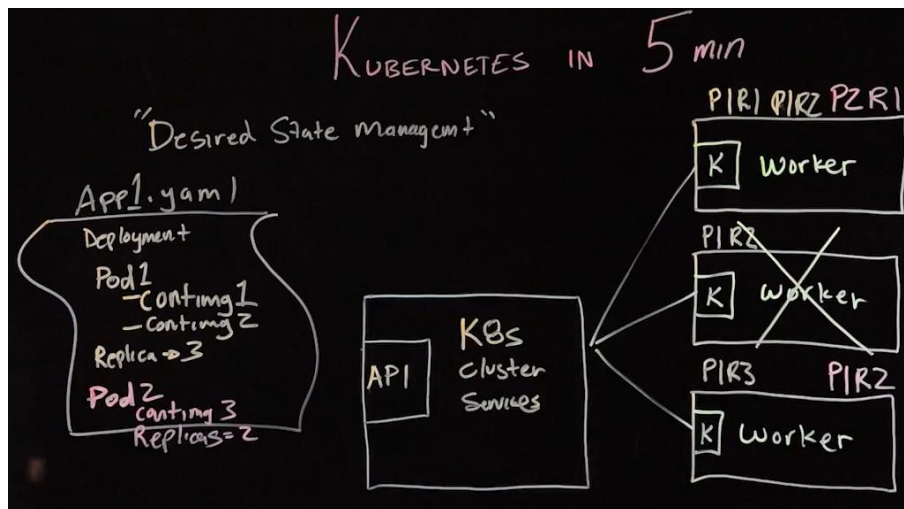 KUBERNETES IN 5 min
"Desired State Managemt"
App1.yaml
Deployment
Pod1
- contimg1
- contimg 2
Replica → 3
Pod2
contimg 3
Replicas=2
API
K8s
Cluster
Services
P1R1 P1R2 P2R1
K Worker
P1R2
K Worker
P1R3 P1R2
K Worker